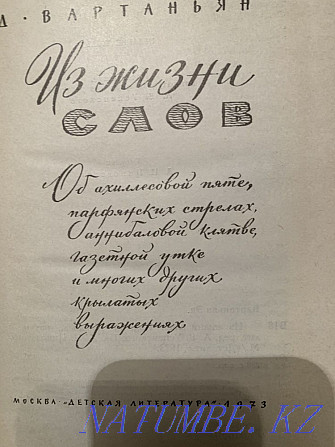 Д · ВАРТАНЬЯН
Из жизни
СЛОВ
Об ахиллесовой пяте,
парфянских стрелах,
аннибаловой клятве,
газетной утке
и многих других
крылатых
выражениях
МОСКВА "ДЕТСКАЯ ЛИТЕРАТУРА" 1973
NATUMBE.KZ